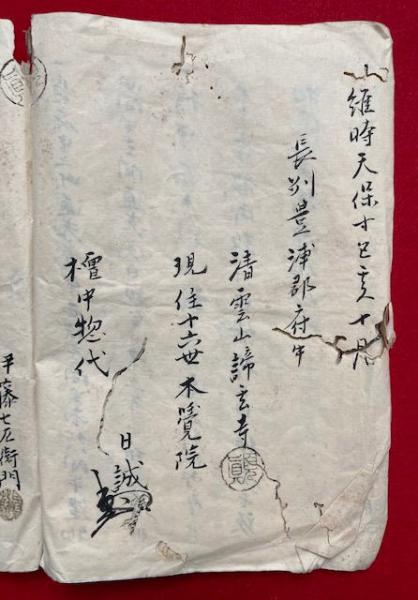 維時天保十己亥十月
長州豊浦郡府中
清雲山諦玄寺
現住十六世本覺院
日誠
檀中惣代
藤七左衛門